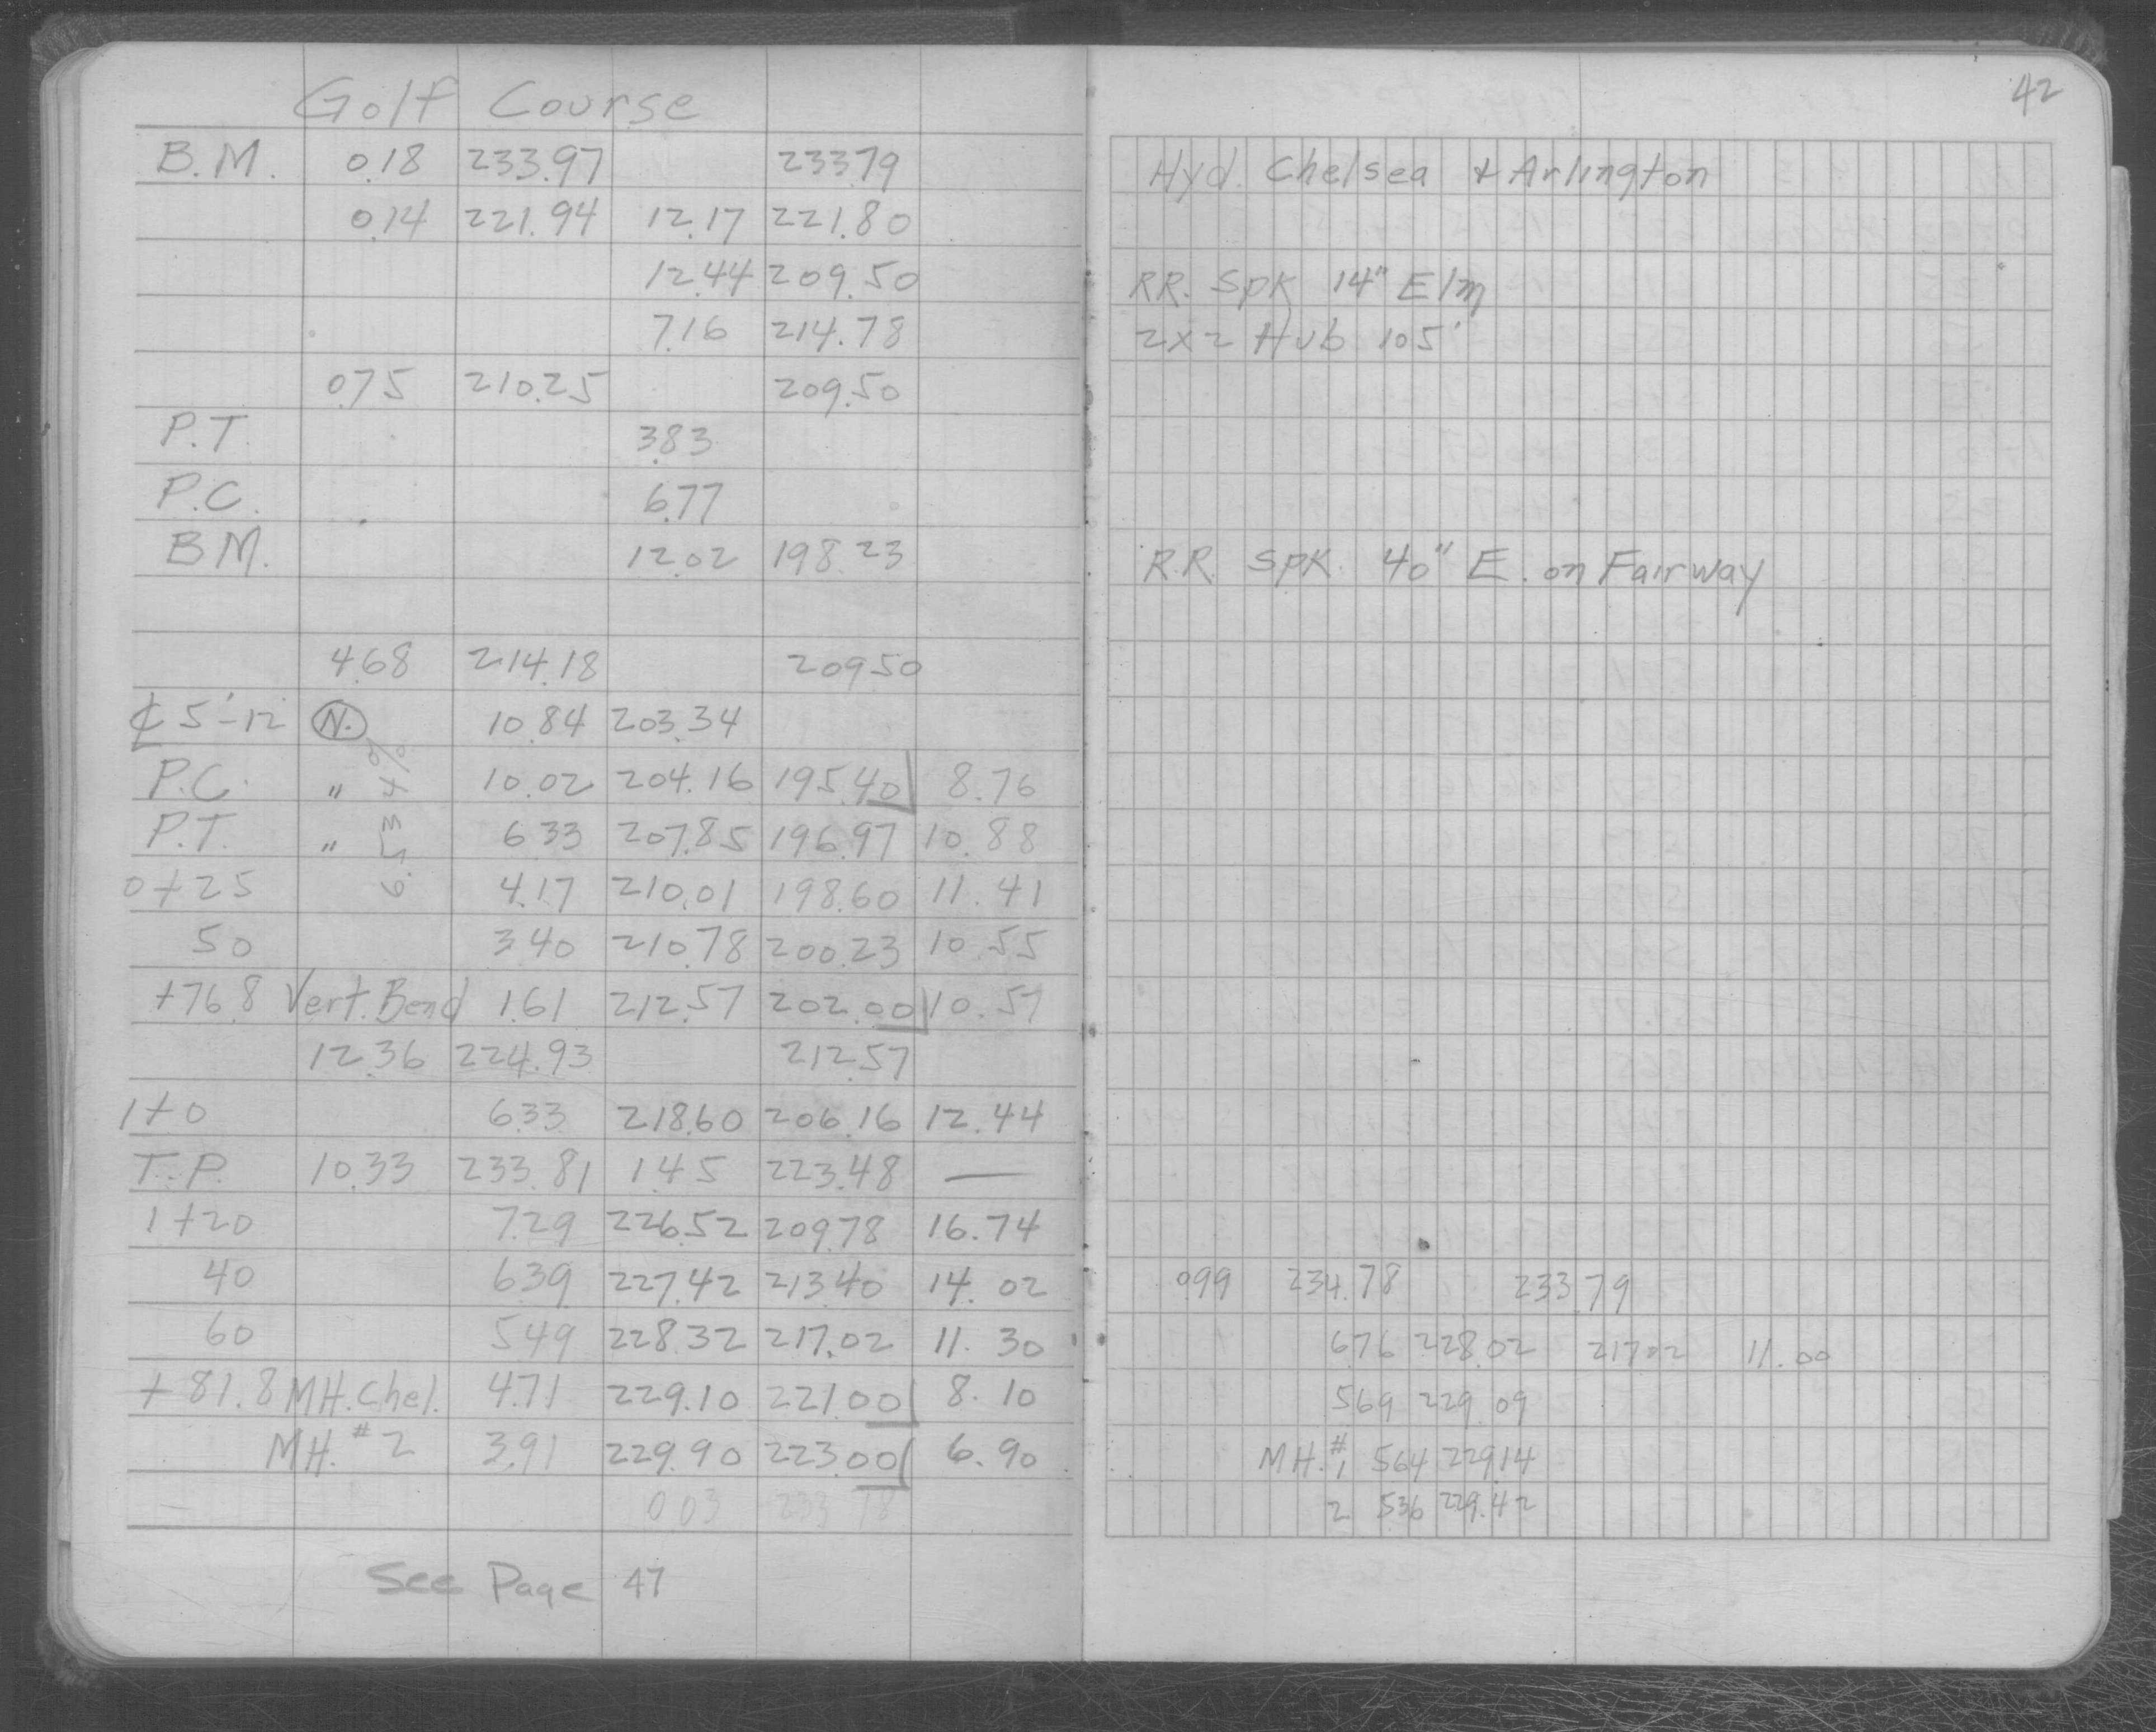 42
Golf Course
B.M. 0.18 233.97 233.79 Hyd. Chelsea & Arlington
0.14 221.94 12.17 221.80
12.44 209.50 RR. Spk 14" Elm
7.16 214.78 2x2 Hub 105'
0.75 210.25 209.50
P.T. 3.83
P.C. 6.77
B.M. 12.02 198.23 R.R. Spk. 40" E. on Fairway
4.68 214.18 209.50
℄ 5'-12 N. 10.84 203.34
P.C. " 10.02 204.16 195.40 8.76
P.T. " 6.33 207.85 196.97 10.88
6.534%
0+25 4.17 210.01 198.60 11.41
50 3.40 210.78 200.23 10.55
+76.8 Vert. Bend 1.61 212.57 202.00 10.57
12.36 224.93 212.57
1+0 6.33 218.60 206.16 12.44
T.P. 10.33 233.81 1.45 223.48 —
1+20 7.29 226.52 209.78 16.74
40 6.39 227.42 213.40 14.02 0.99 234.78 233.79
60 5.49 228.32 217.02 11.30 6.76 228.02 217.02 11.00
+81.8 MH. Chel. 4.71 229.10 221.00 8.10 5.69 229.09
MH. #2 3.91 229.90 223.00 6.90 MH. #1 5.64 229.14
0.03 233.78 2 5.36 229.42
See Page 47